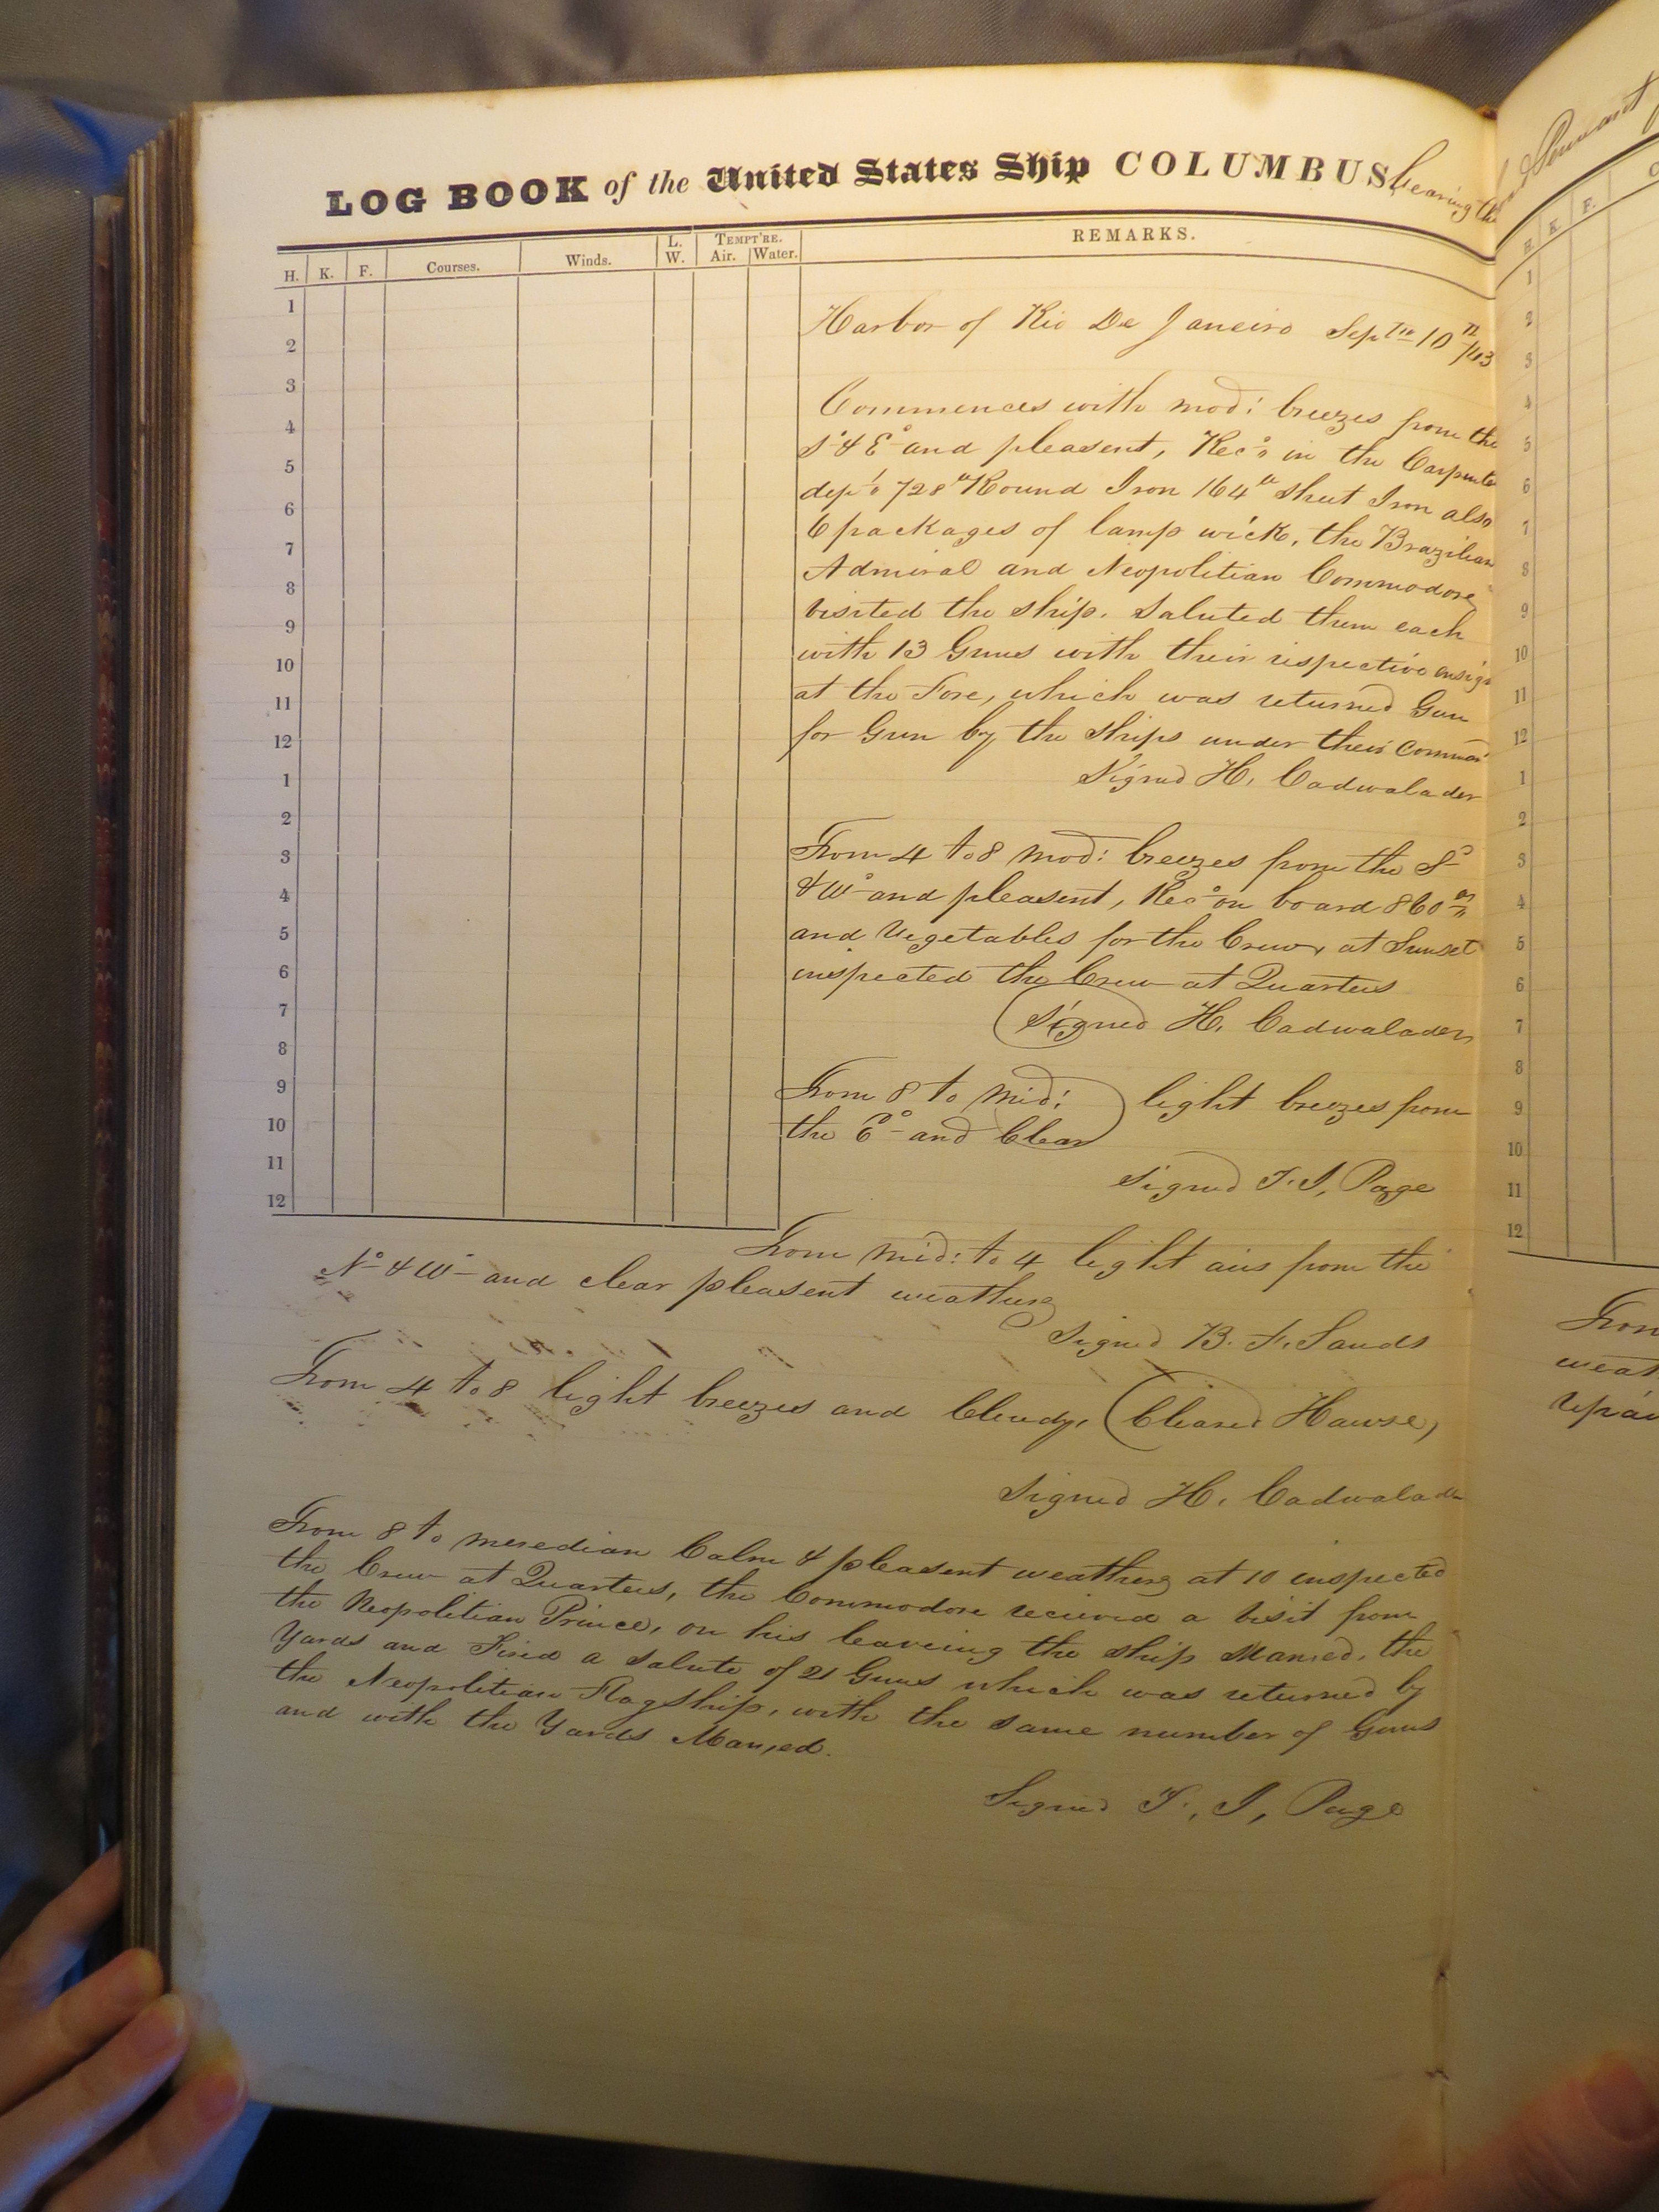 LOG BOOK of the United States Ship COLUMBUS bearing the
H. K. F. Courses. Winds. L. W. TEMPT'RE. Air. Water. REMARKS.
1
2
3
4
5
6
7
8
9
10
11
12
1
2
3
4
5
6
7
8
9
10
11
12
Harbor of Rio De Janeiro Sepr 10th /43
Commences with mod: breezes from the
Sd & Ed and pleasent, Recd in the Carpente
dept 728 lb Round Iron 164 lb sheet Iron also
6 packages of lamp wick, the Brazilian
Admiral and Neopolitian Commodore
visited the ship. Saluted them each
with 13 Guns with their respective ensign
at the Fore, which was returned Gun
for Gun by the ships under their comman
Signed H. Cadwalader
From 4 to 8 mod: breezes from the Sd
& Wd and pleasent, Recd on board 860
and Vegetables for the Crew, at Sunset
inspected the Crew at Quarters
Signed H. Cadwalader
From 8 to Mid: light breezes from
the Ed and Clear
Signed T. J. Page
From Mid: to 4 light airs from the
Nd & Wd and clear pleasent weather
Signed B. F. Sands
From 4 to 8 light breezes and Cloudy, (Cleared Hawse,)
Signed H. Cadwalader
From 8 to meredian Calm & pleasent weather at 10 inspected
the Crew at Quarters, the Commodore recieved a visit from
the Neopolitian Prince, on his leaveing the ship Maned, the
Yards and Fired a salute of 21 Guns which was returned by
the Neopolitian Flag Ship, with the same number of Guns
and with the Yards Maned.
Signed T. J. Page
Pennant
H. K. F.
1
2
3
4
5
6
7
8
9
10
11
12
1
2
3
4
5
6
7
8
9
10
11
12
From
weat